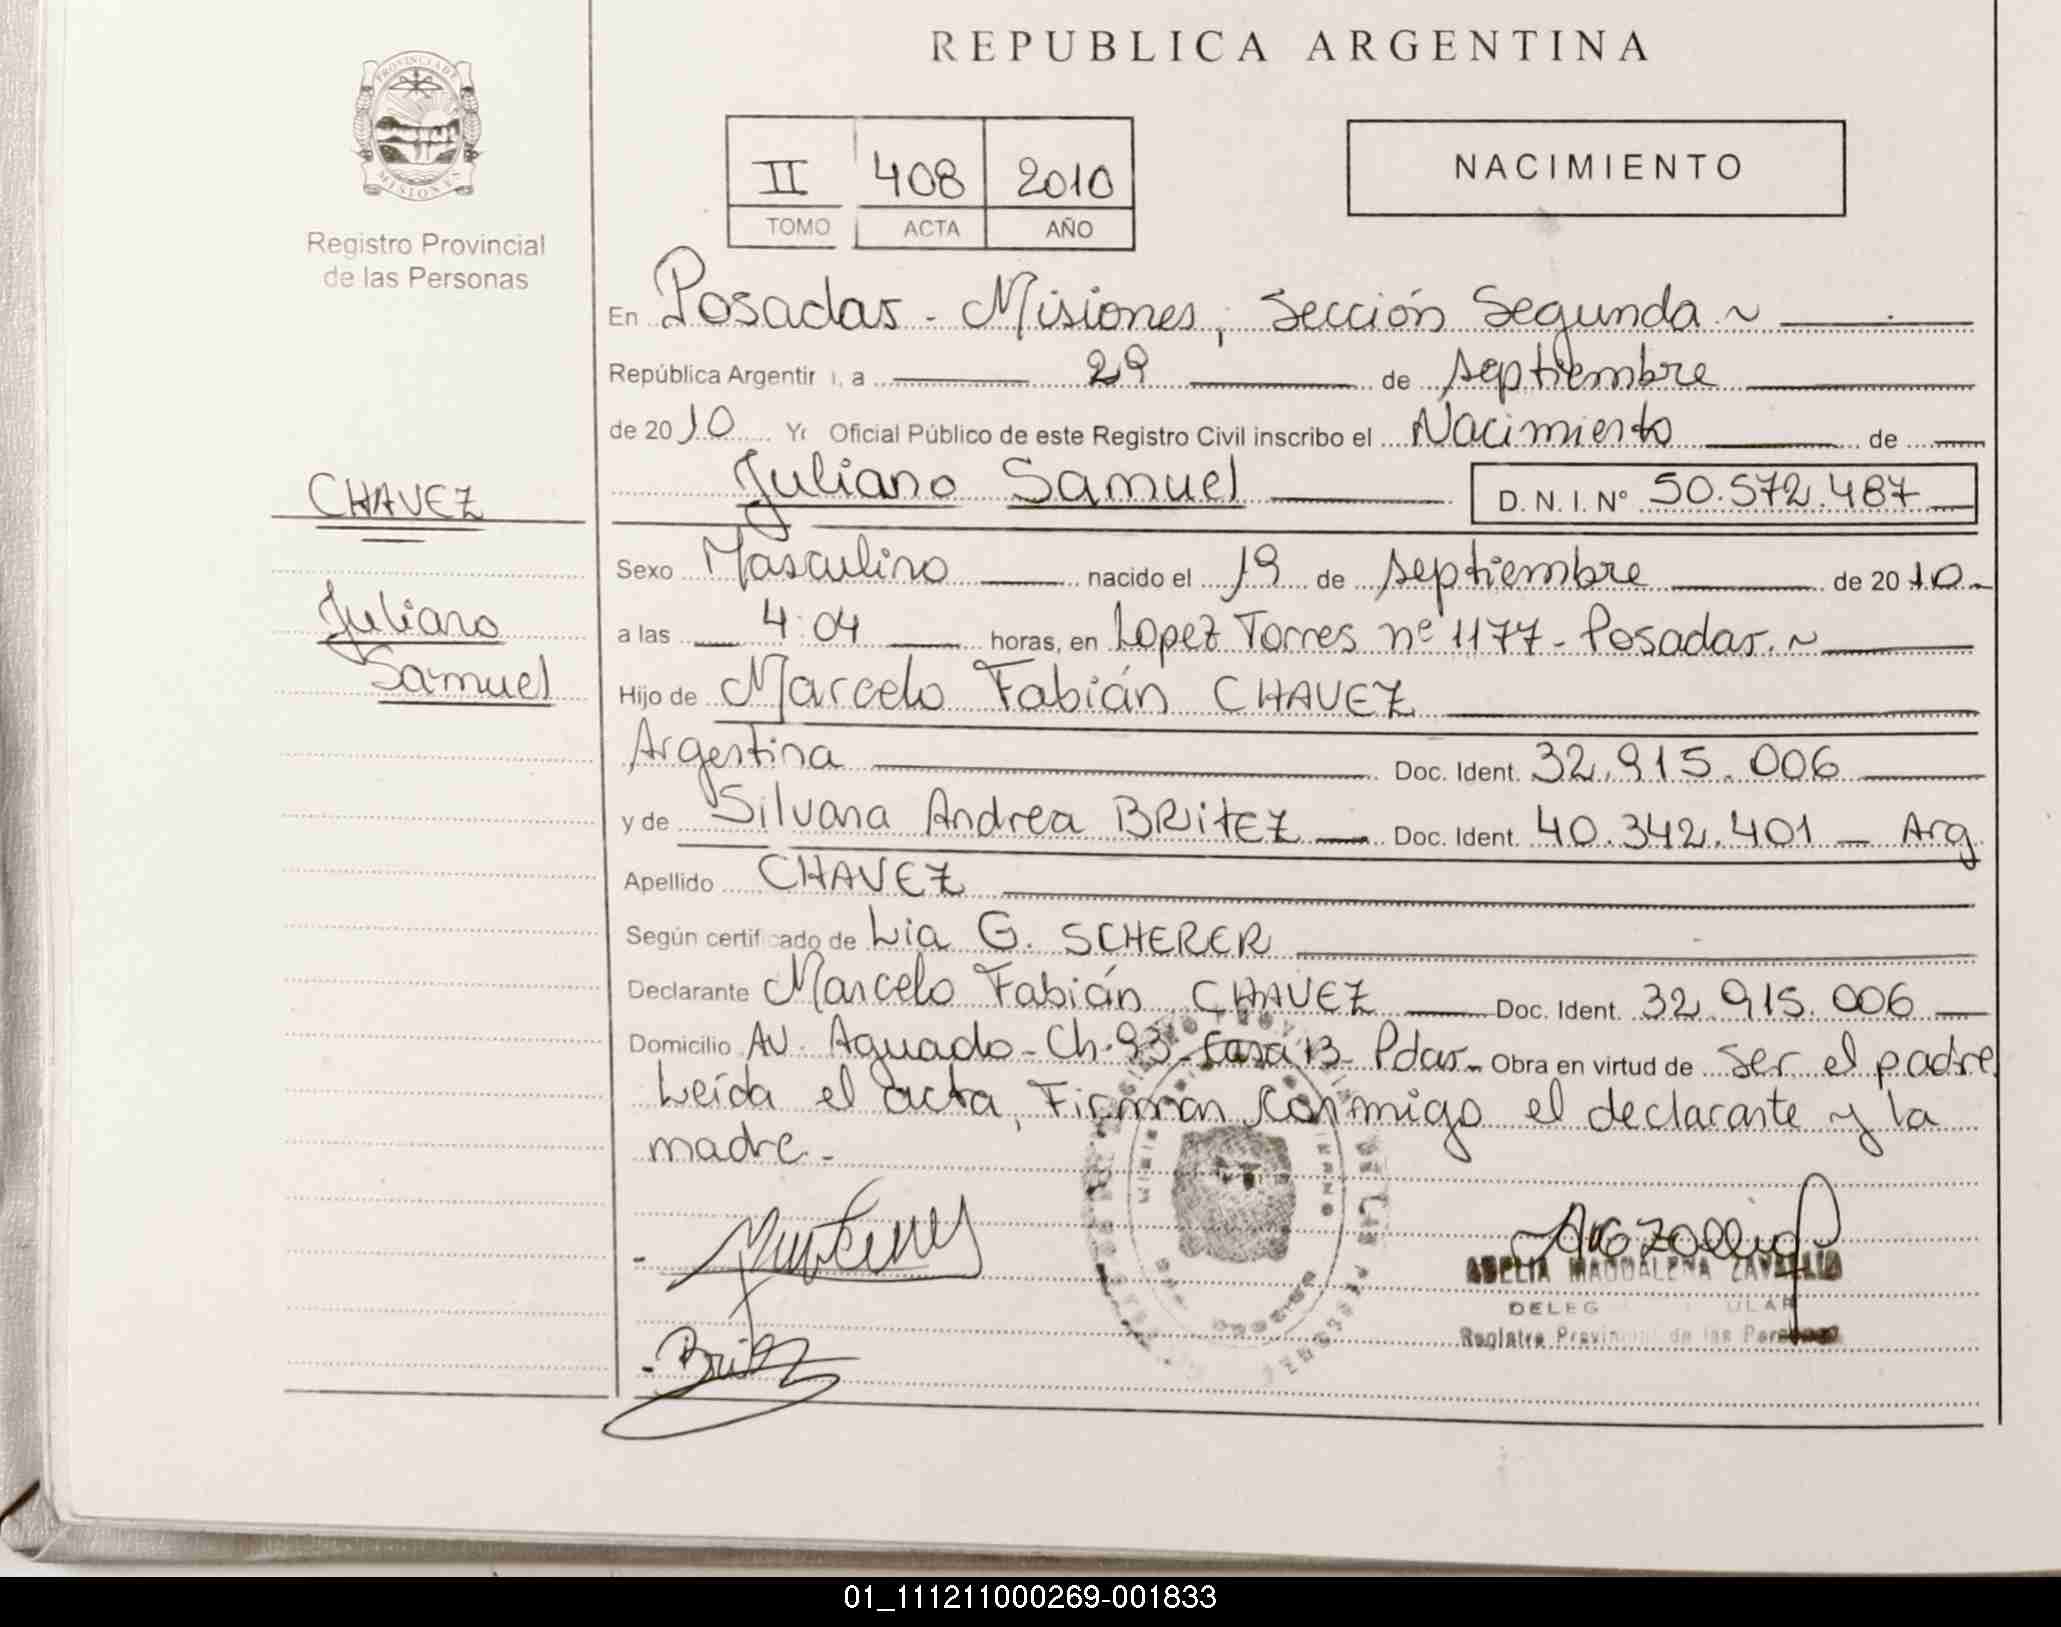 REPUBLICA ARGENTINA
PROVINCIA DE
MISIONES
Registro Provincial
de las Personas
II 408 2010
TOMO ACTA AÑO
NACIMIENTO
En Posadas - Misiones, Sección Segunda ~
República Argentin , a 29 de septiembre
de 2010 Yo Oficial Público de este Registro Civil inscribo el Nacimiento de
Juliano Samuel D. N. I. Nº 50.572.487
CHAVEZ
Juliano
Samuel
Sexo Masculino nacido el 19 de septiembre de 2010.-
a las 4:04 horas, en Lopez Torres nº 1177 - Posadas. ~
Hijo de Marcelo Fabián CHAVEZ
Argentina Doc. Ident. 32.915.006
y de Silvana Andrea BRITEZ Doc. Ident. 40.342.401 - Arg
Apellido CHAVEZ
Según certificado de Lia G. SCHERER
Declarante Marcelo Fabián CHAVEZ Doc. Ident. 32.915.006
Domicilio Av. Aguado - Ch. 93 - Casa 13 - Pdas - Obra en virtud de ser el padre
Leída el acta, Firman conmigo el declarante y la
madre.-
Britez
ADELIA MAGDALENA ZAVALLIA
DELEG ULAR
Registro Provincial de las Personas
01_111211000269-001833